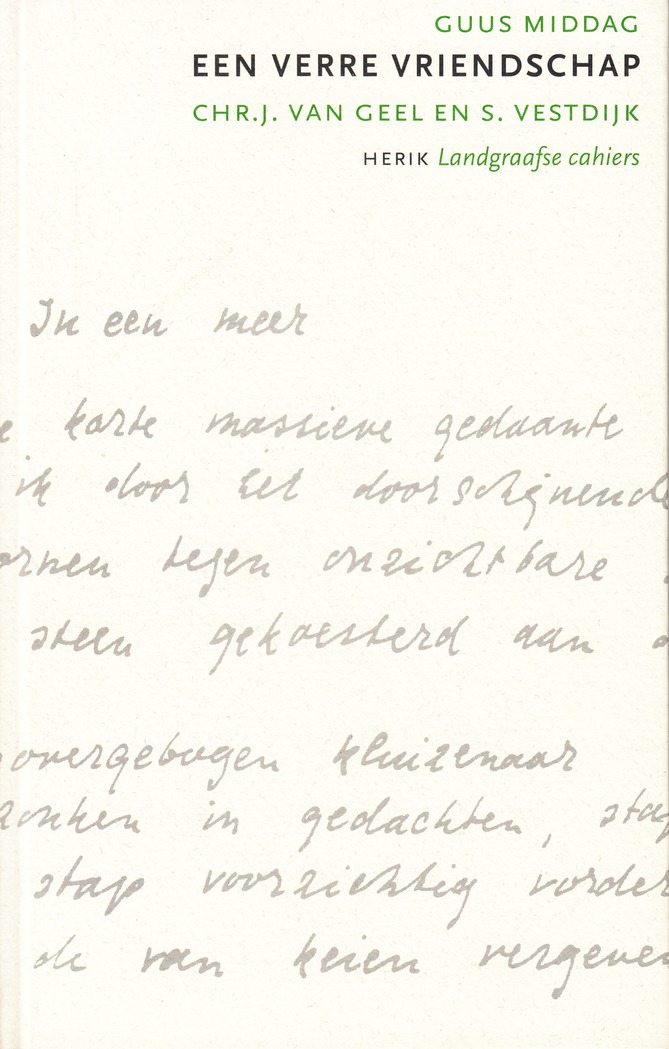 GUUS MIDDAG
EEN VERRE VRIENDSCHAP
CHR.J. VAN GEEL EN S. VESTDIJK
HERIK Landgraafse cahiers
In een meer
e korte massieve gedaante
ik door het doorschijnende
ornen tegen onzichtbare
steen gekoesterd aan
overgebogen kluizenaar
zonken in gedachten, stap
stap voorzichtig vorder
de van keien vergeven